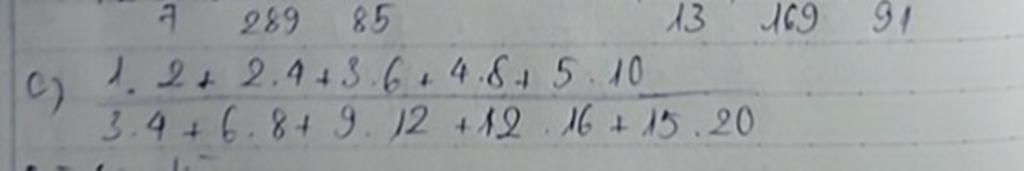 7 289 85 13 169 91
c) 1. 2 + 2.4 + 3.6 + 4.8 + 5.10
3.4 + 6.8 + 9.12 + 12.16 + 15.20